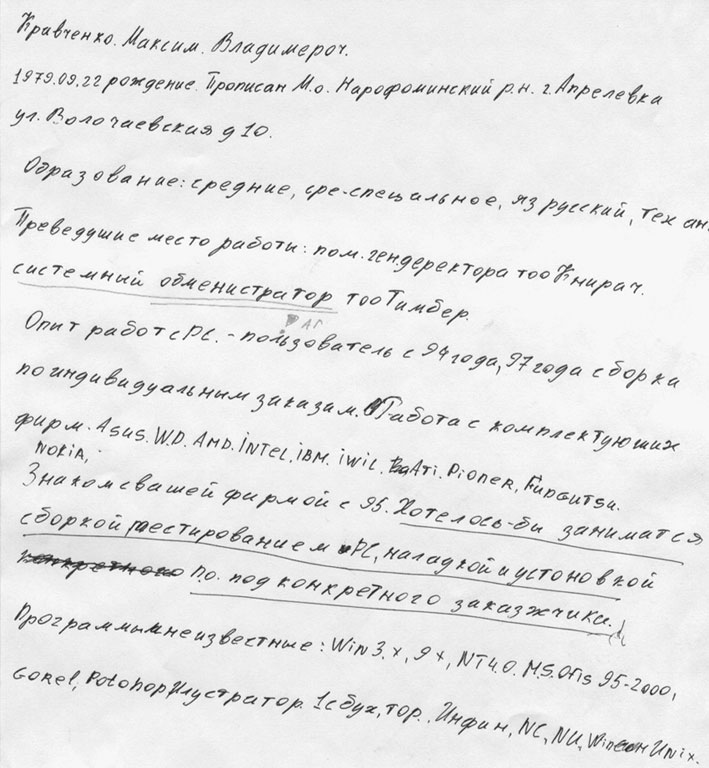 Кравченко. Максим. Владимероч.
1979.09.22 рождение. Прописан М.о. Нарофоминский р.н. г. Апрелевка
ул. Волочаевская д 10.
Образование: средние, сре-специльное, яз русский, тех ан.
Преведушие место работы: пом. ген.деректора тоо Книрач.
системний обменистратор тоо Тимбер.
Опит работ с РС. - ползователь с 94 года, 97 года сборка
по индивидуальным заказам. Работа с комплектующих
фирм. Asus. WD. AMD. iNTEL. iBM. iWiL. ATi. Pioner. Fungutsu.
NOKiA,
Знаком с вашей фирмой с 95. Хотелось-би заниматся
сборкой тестированием РС, наладкой и устоновкой
по. под конкретного заказжчика.
Программы мне известные: Win 3.x, 9x, NT 4.0. M.S. Ofis 95-2000,
Gorel, Potohop Илустратор. 1с бух, тор. Инфин, NC, NU, Win Unix.